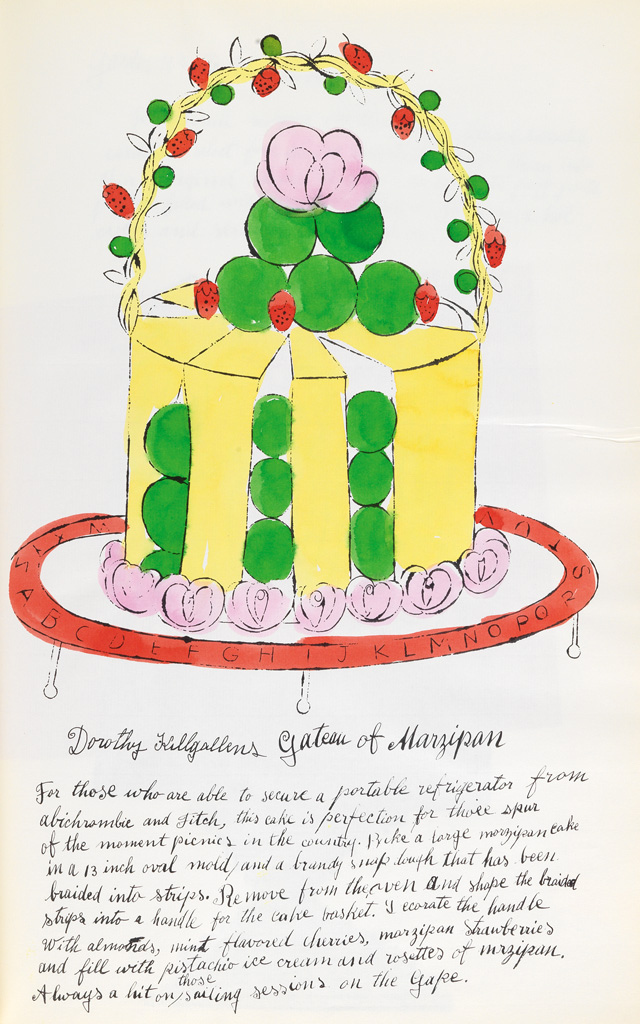 W X Y Z A B C D E F G H I J K L M N O P Q R S T U V
Dorothy Killgallens Gateau of Marzipan
For those who are able to secure a portable refrigerator from
abichrombie and Fitch, this cake is perfection for those spur
of the moment picnics in the country. Bake a large marzipan cake
in a 13 inch oval mold, and a brandy snap dough that has been
braided into strips. Remove from the oven and shape the braided
strips into a handle for the cake basket. Decorate the handle
with almonds, mint flavored cherries, marzipan strawberries
and fill with pistachio ice cream and rosettes of mrzipan.
Always a hit on those sailing sessions on the Gape.